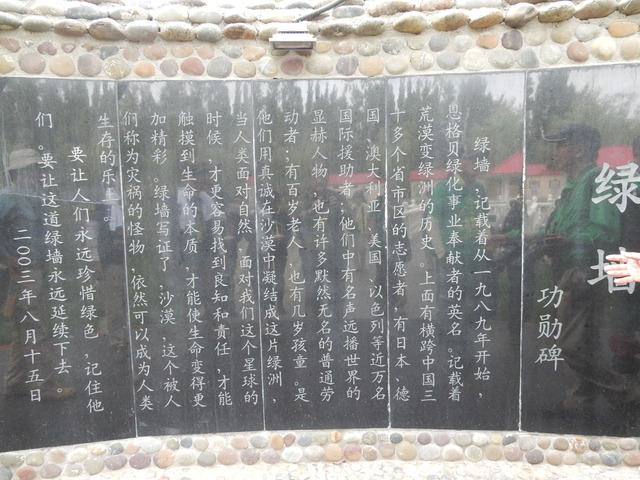 绿墙
功勋碑
绿墙，记载着从一九八九年开始，
恩格贝绿化事业奉献者的英名。记载着
荒漠变绿洲的历史。上面有横跨中国三
十多个省市区的志愿者，有日本、德
国、澳大利亚、美国、以色列等近万名
国际援助者，他们中有名声远播世界的
显赫人物，也有许多默然无名的普通劳
动者；有百岁老人，也有几岁孩童。是
他们用真诚在沙漠中凝结成这片绿洲，
当人类面对自然，面对我们这个星球的
时候，才更容易找到良知和责任，才能
触摸到生命的本质，才能使生命变得更
加精彩。绿墙写证了，沙漠，这个被人
们称为灾祸的怪物，依然可以成为人类
生存的乐土。
要让人们永远珍惜绿色，记住他
们。要让这道绿墙永远延续下去。
二00三年八月十五日